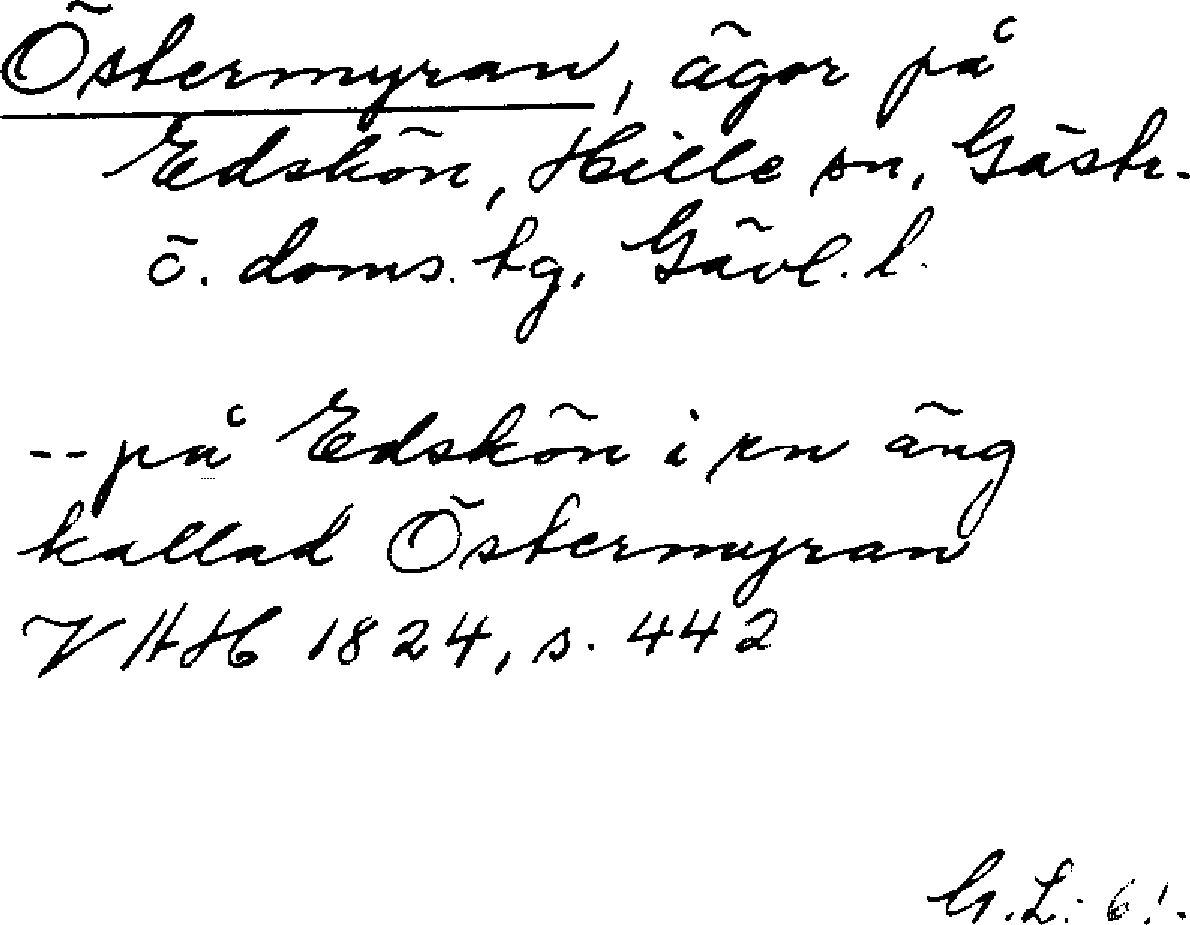 Östermyran, ägor på
Edskön, Hille sn, Gästr.
ö. doms. hg, Gävl. l.
-- på Edskön i en äng
kallad Östermyran
VHAH 1824, s. 442
G.L.